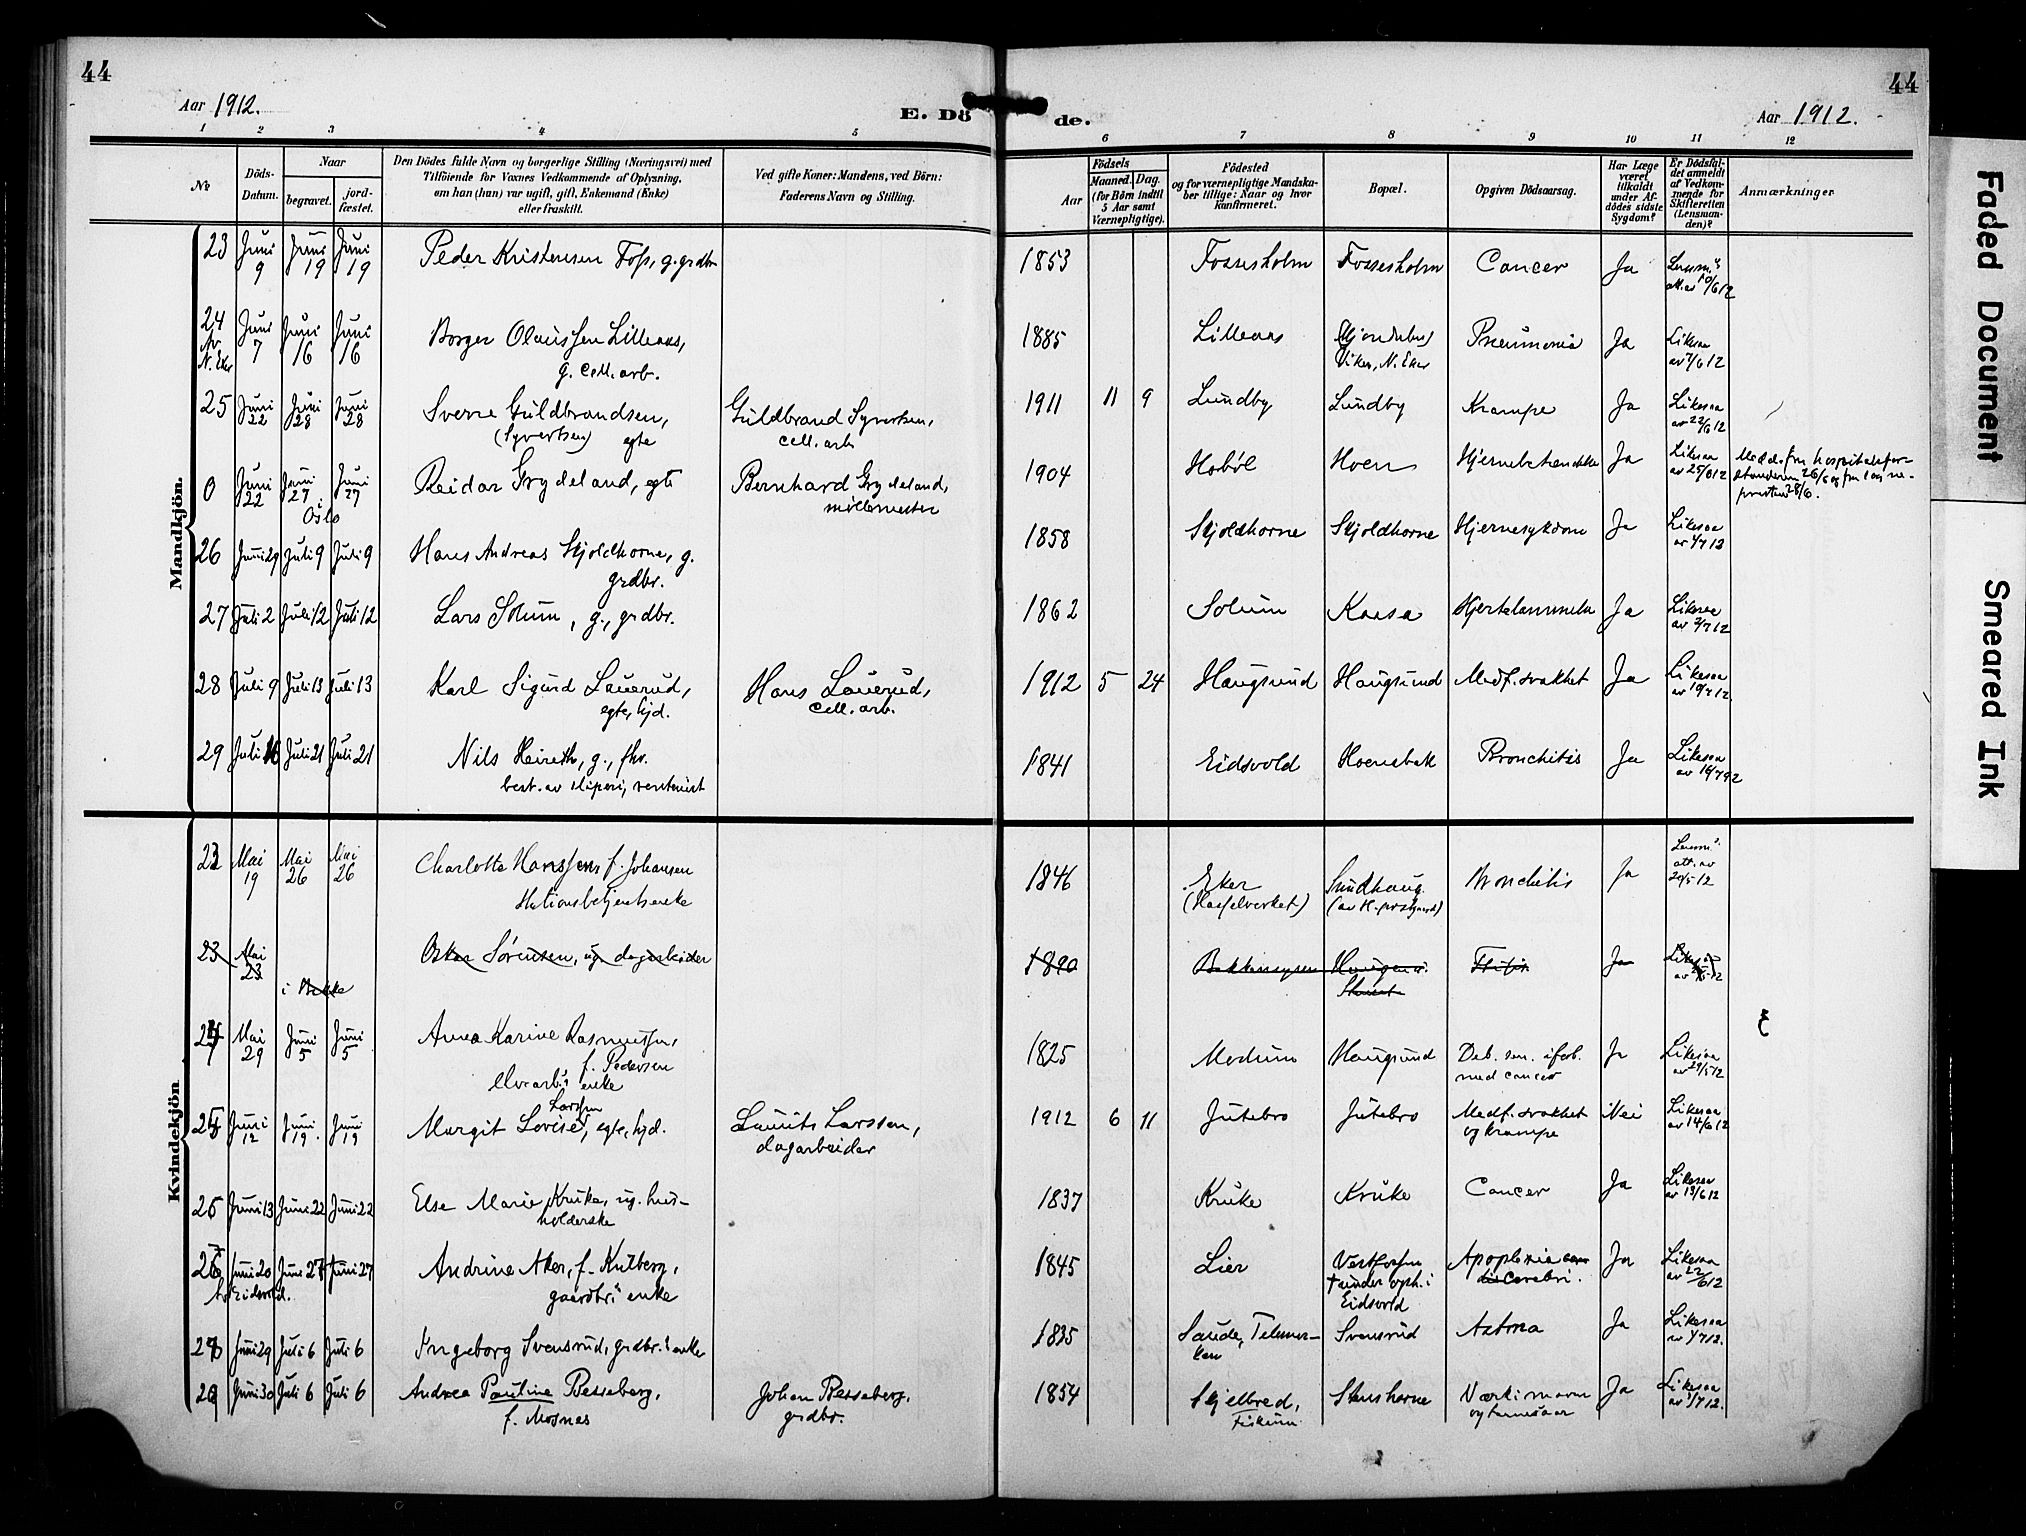 44
44
Aar 1912.
E. Dö de.
Aar 1912.
1 2 3 4 5 6 7 8 9 10 11 12
No
Döds-
Datum.
Naar
begravet.
jord-
fæstet.
Den Dödes fulde Navn og borgerlige Stilling (Næringsvei) med
Tilföiende for Voxnes Vedkommende af Oplysning,
om han (hun) var ugift, gift, Enkemand (Enke)
eller fraskilt.
Ved gifte Koner: Mandens, ved Börn:
Faderens Navn og Stilling.
Födsels
Aar
Maaned. Dag.
(for Börn indtil
5 Aar samt
Værnepligtige).
Födested
og for værnepligtige Mandska-
ber tillige: Naar og hvor
konfirmeret.
Bopæl.
Opgiven Dödsaarsag.
Har Læge
været
tilkaldt
under Af-
dödes sidste
Sygdom?
Er Dödsfal-
det anmeldt
af Vedkom-
mende for
Skifteretten
(Lensman-
den)?
Anmærkninger
Mandkjön.
23 Juni 9 Juni 19 Juni 19 Peder Kristensen Foss, g. grdbr 1853 Fossesholm Fossesholm Cancer Ja Lensm.s
att. av 10/6 12
24 Juni 7 Juni 16 Juni 16 Borger Olaussen Lilleaas, 1885 Lilleaas Pneumonia Ja Likesaa
Av N. Eker g. cell. arb. Viker, N. Eker av 7/6 12
25 Juni 22 Juni 28 Juni 28 Sverre Guldbrandsen, Guldbrand Syvertsen, 1911 11 9 Lundby Lundby Krampe Ja Likesaa
(Syvertsen) egte cell. arb av 22/6 12
0 Juni 22 Juni 27 Juni 27 Reidar Grydeland, egte Bernhard Grydeland, 1904 Hobøl Hoen Hjernebetændelse Ja Likesaa
i Oslo møllemester av 25/6 12
Medd. fra hospitalsfor-
standeren 26/6 og fra sogne-
presten 28/6.
26 Juni 29 Juli 9 Juli 9 Hans Andreas Skjoldhorne, g. 1858 Skjoldhorne Skjoldhorne Hjernesykdom Ja Likesaa
grdbr. av 1/7 12
27 Juli 2 Juli 12 Juli 12 Lars Solum, g., grdbr. 1862 Solum Kaasa Hjertelammelse Ja Likesaa
av 2/7 12
28 Juli 9 Juli 13 Juli 13 Karl Sigurd Lauerud, Hans Lauerud, 1912 5 24 Haugsund Haugsund Medf. svakhet Ja Likesaa
egte, hjd. cell. arb. av 10/7 12
29 Juli 16 Juli 21 Juli 21 Nils Heireth, g., fhv. 1841 Eidsvold Hoensbak Bronchitis Ja Likesaa
best. av sliperi, rentenist
Kvindekjön
22 Mai 19 Mai 26 Mai 26 Charlotte Hanssen, f. Johansen 1846 Eker Sundhaug Bronchitis Ja Lensm.s
Stationsbetjents enke (Hasselverket) att. av
20/5 12
23 Mai 23 Oskar Sørensen, ug. dagarbeider 1890 Bakkeneyen Haugen u. Ftisis Ja Likesaa
i Bakke
24 Mai 29 Juni 5 Juni 5 Anna Karine Rasmussen, 1825 Modum Haugsund Deb. sen. i forb. Ja Likesaa
f. Pedersen med cancer av 29/5 12
elvearb.s enke
Juni 12 Juni 19 Juni 19 Margit Lovise Larssen, egte, hjd. Laurits Larssen, 1912 6 11 Jutebro Jutebro Medf. svakhet Nei Likesaa
dagarbeider og krampe av 14/6 12
Juni 13 Juni 22 Juni 22 Else Marie Kruke, ug. hus- 1837 Kruke Kruke Cancer Ja Likesaa
holderske av 13/6 12
Juni 20 Juni 27 Juni 27 Andrine Aker, f. Kulberg, 1845 Lier Vestfossen Apoplexia Ja Likesaa
Av Eidsvold. gaardbr.s enke † under oph. i cerebri. av 22/6 12
Eidsvold
Juni 29 Juli 6 Juli 6 Ingeborg Svensrud, grdbr.s enke 1835 Saude, Telemar- Svensrud Astma Ja Likesaa
ken av 1/7 12.
Juni 30 Juli 6 Juli 6 Andrea Pauline Besseberg, Johan Besseberg, 1854 Skjelbred, Stenshorne Ja Likesaa
f. Mosnes grdbr. Fiskum av 1/7 12.
Faded Document
Smeared Ink